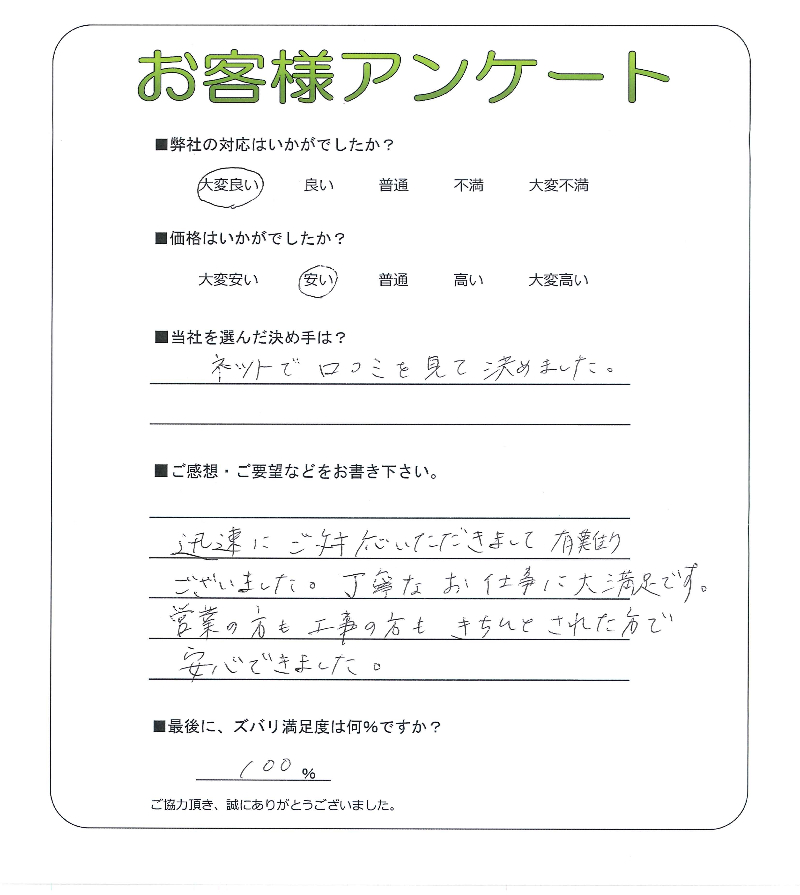 お客様アンケート
■弊社の対応はいかがでしたか？
大変良い 良い 普通 不満 大変不満
■価格はいかがでしたか？
大変安い 安い 普通 高い 大変高い
■当社を選んだ決め手は？
ネットで口コミを見て決めました。
■ご感想・ご要望などをお書き下さい。
迅速にご対応いただきまして有難り
ございました。丁寧なお仕事に大満足です。
営業の方も工事の方もきちんとされた方で
安心できました。
■最後に、ズバリ満足度は何%ですか？
100%
ご協力頂き、誠にありがとうございました。